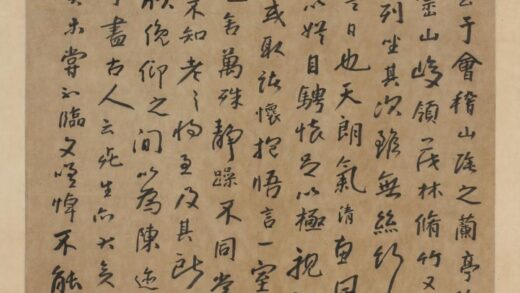 于會稽山陰之蘭亭
崇山峻領茂林脩竹又
列坐其次雖無絲竹
是日也天朗氣清惠風
以遊目騁懷足以極視
或取諸懷抱悟言一室
舍萬殊靜躁不同當
不知老之將至及其所
欣俛仰之間以為陳迹
盡古人云死生亦大矣
未嘗不臨文嗟悼不能